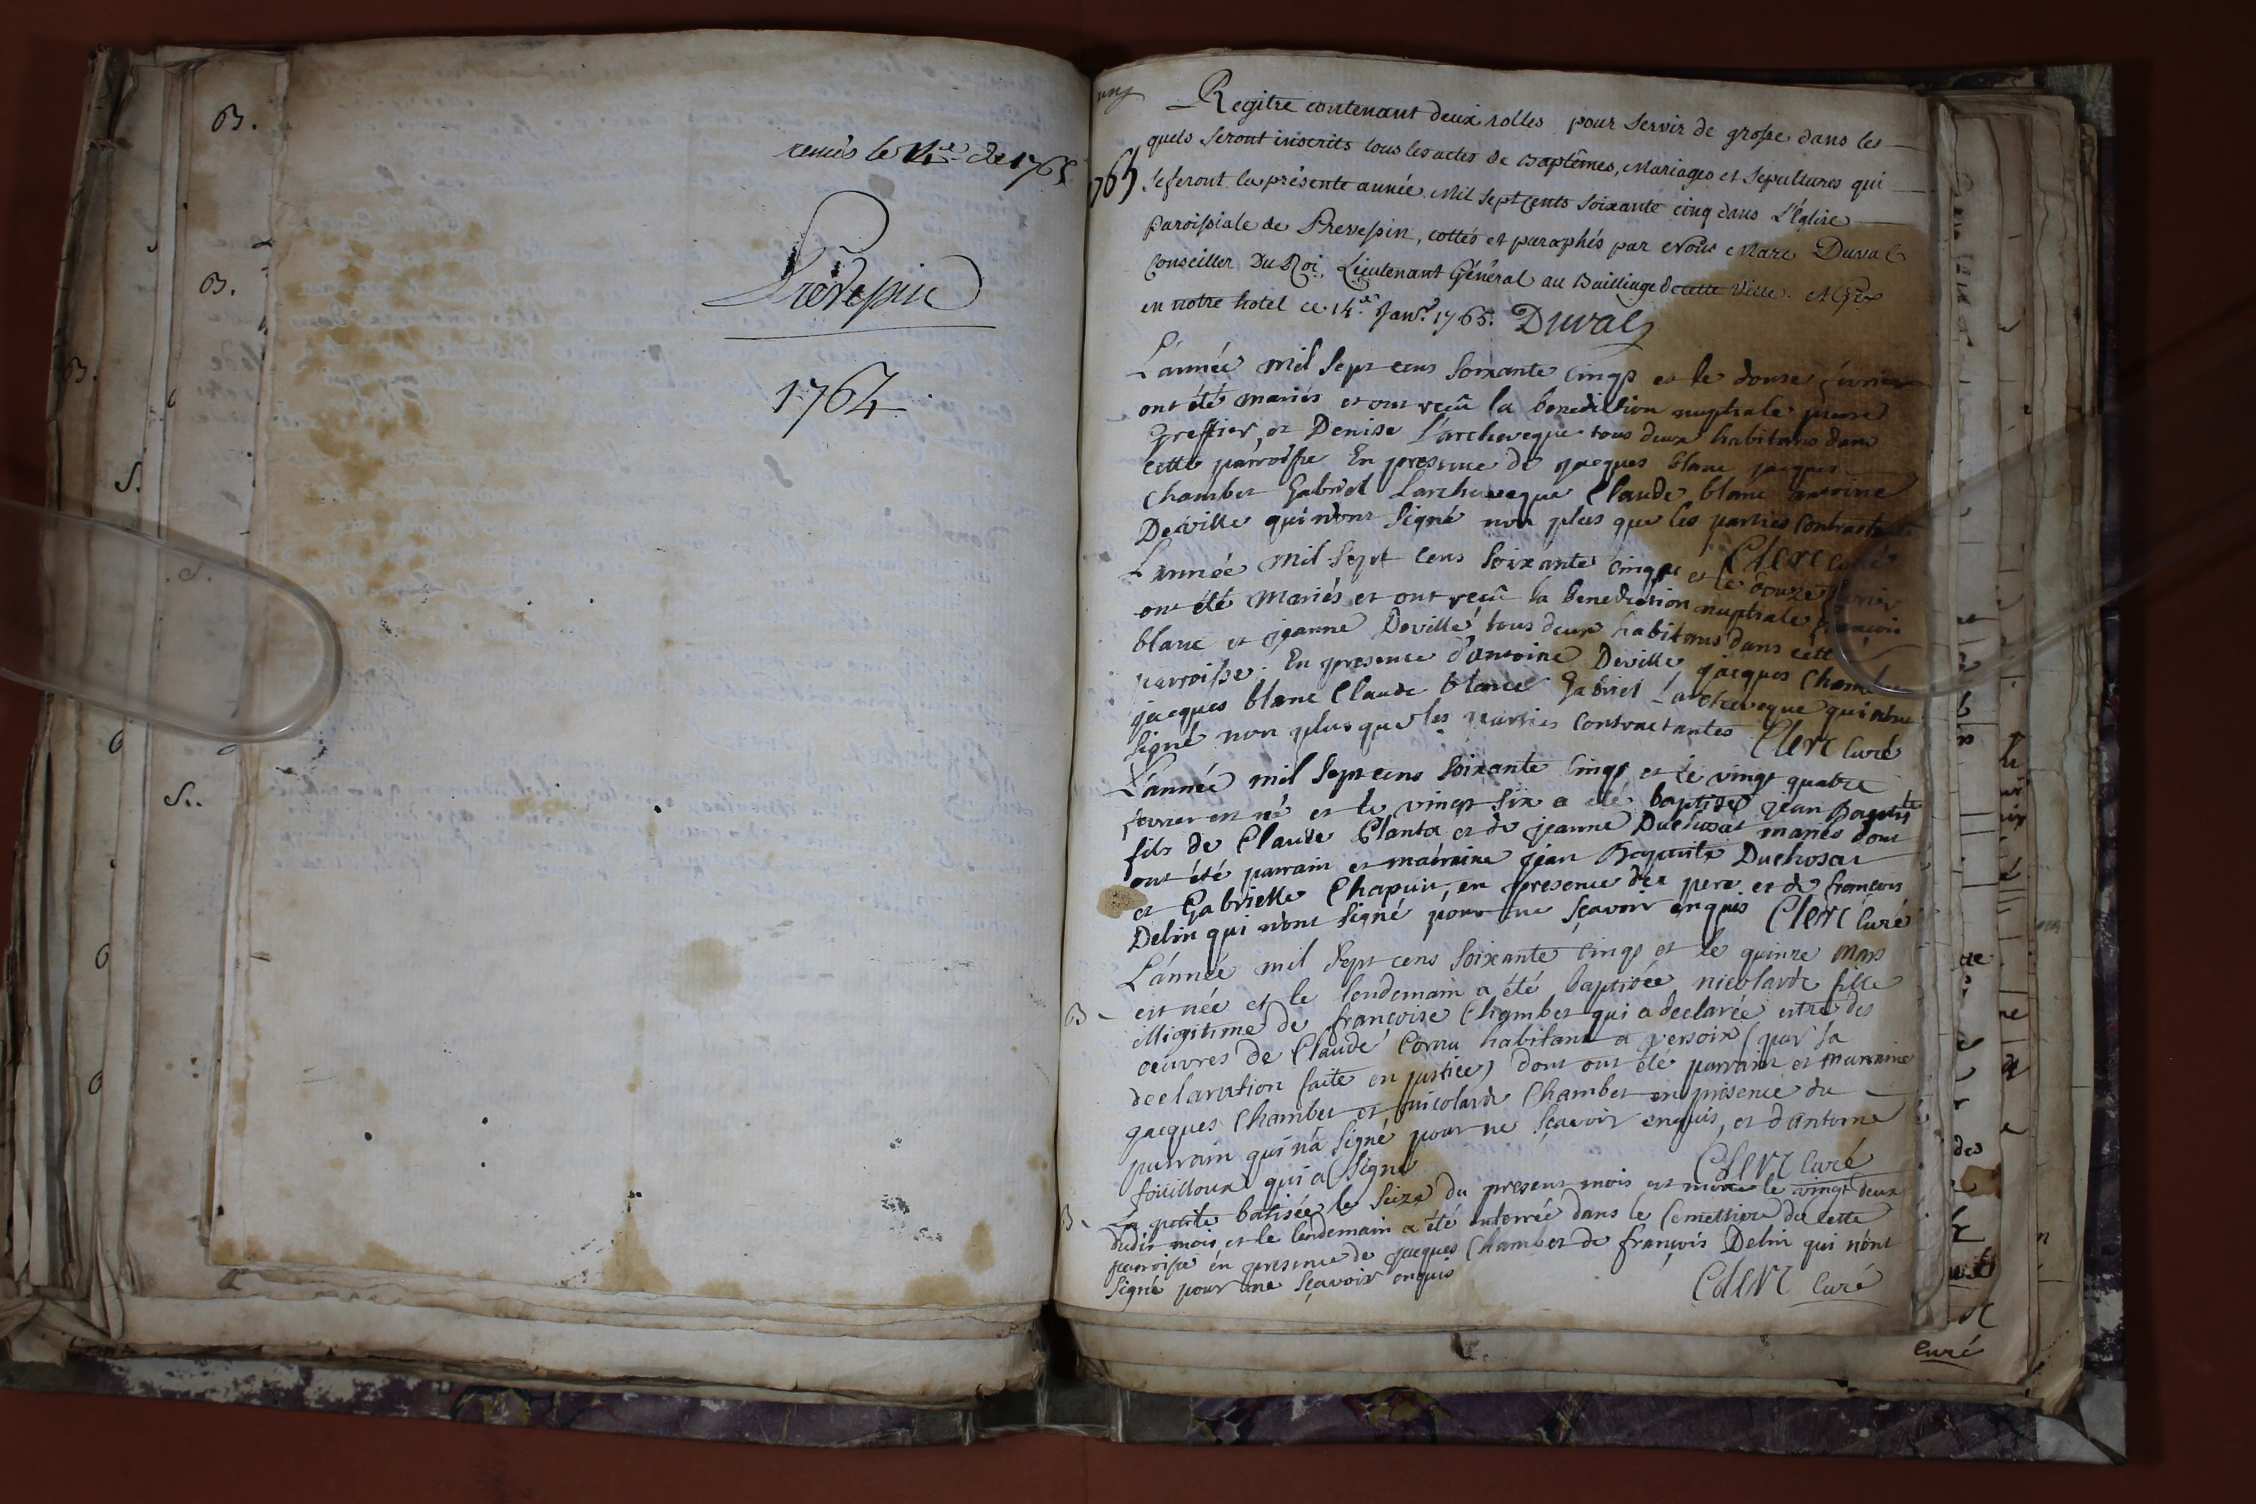 B.
B.
remis le 14e de 1765
Prévessin
1764
S.
S..
1765
Regitre contenant deux rolles pour servir de grosse dans les
quels seront inscrits tous les actes de Baptêmes, Mariages et Sepultures qui
se feront la présente année Mil Sept Cents Soixante cinq dans L'Église
Paroissiale de Prevessin, cottés et paraphés par Nous Marc Duval
Conseiller Du Roi, Lieutenant Général au Bailliage de cette Ville. A Gex
en notre hotel ce 14e Janvr. 1765. Duval
L'année mil Sept cens Soixante cinq et le douze fevrier
ont été mariés et ont reçû la benediction nuptiale pierre
Greffier et Denise L'archeveque tous deux habitans dans
cette parroisse En presence de jacques blanc jacques
Chambet Gabriel Larcheveque Claude blanc antoine
Deville qui n'ont signé non plus que les parties Contractantes
Clerc Curé
L'année mil Sept cens Soixante cinq et le douze fevrier
ont été Mariés et ont reçû la benediction nuptiale françois
blanc et jeanne Deville tous deux habitans dans cette
parroisse. En presence d'antoine Deville jacques Chambet
jacques blanc Claude blanc Gabriel Larcheveque qui n'ont
signé non plus que les parties Contractantes Clerc Curé
L'année mil Sept cens Soixante cinq et le vingt quatre
fevrier est né et le vingt six a été baptisé jean Baptiste
fils de Claude Planta et de jeanne Duchosal mariés dont
ont été parrain et marraine jean Baptiste Duchosal
et Gabrielle Chapuis, en presence du pere et de françois
Delin qui n'ont signé pour ne sçavoir enquis Clerc Curé
L'année mil Sept cens Soixante cinq et le quinze Mars
B - est née et le lendemain a été baptisée nicolarde fille
illigitime de françoise Chambet qui a declarée estre des
oeuvres de Claude Cornu habitant a versoix (par sa
declaration faite en justice) dont ont été parrain et marraine
jacques Chambet et nicolarde Chambet en presence du
parrain qui n'a signé pour ne sçavoir enquis, et d'antoine
foüilloux qui a signé
Clerc Curé
B - La petite batisée le seize du present mois est morte le vingt deux
dudit mois et le lendemain a été enterrée dans le Cemettiere de cette
parroisse en presence de jacques Chambet de françois Delin qui n'ont
signé pour ne sçavoir enquis
Clerc Curé
curé